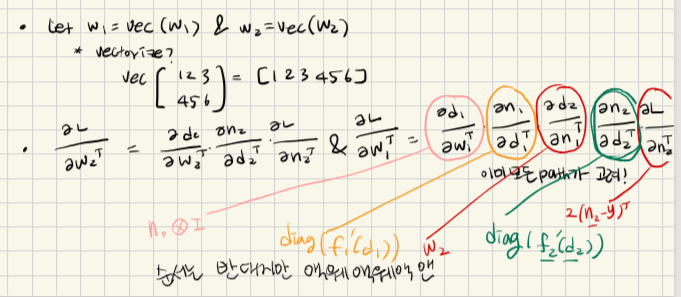 • Let w₁ = vec(W₁) & w₂ = vec(W₂)
* vectorize?
vec [1 2 3 4 5 6] = [1 2 3 4 5 6]
• ∂L/∂w₂ᵀ = ∂d₂/∂w₂ᵀ · ∂n₂/∂d₂ᵀ · ∂L/∂n₂ᵀ & ∂L/∂w₁ᵀ = ∂d₁/∂w₁ᵀ · ∂n₁/∂d₁ᵀ · ∂d₂/∂n₁ᵀ · ∂n₂/∂d₂ᵀ · ∂L/∂n₂ᵀ
이미 모든 path가 고려!
n₀⊗I diag(f₁'(d₁)) W₂ diag(f₂'(d₂)) 2(n₂-y)ᵀ
순서는 반대지만